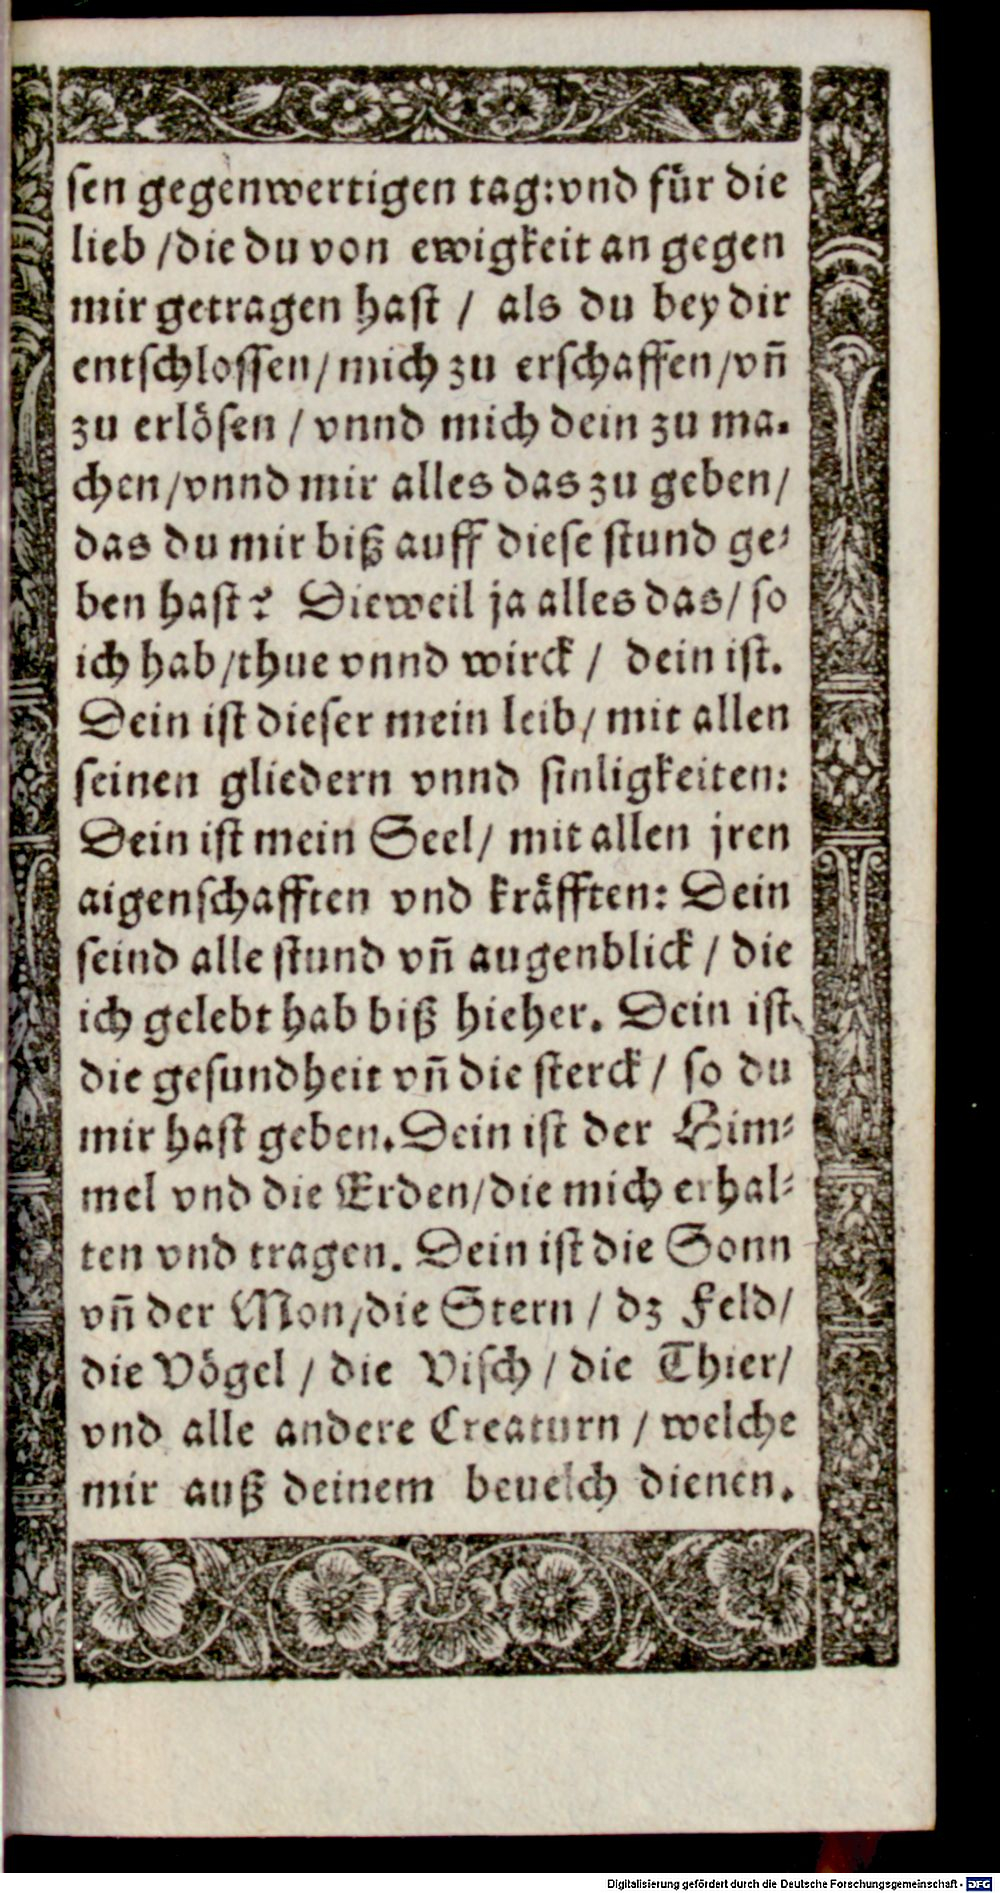 sen gegenwertigen tag: vnd für die
lieb / die du von ewigkeit an gegen
mir getragen hast / als du bey dir
entschlossen / mich zu erschaffen / vñ
zu erlösen / vnnd mich dein zu ma-
chen / vnnd mir alles das zu geben /
das du mir biß auff diese stund ge-
ben hast? Dieweil ja alles das / so
ich hab / thue vnnd wirck / dein ist.
Dein ist dieser mein leib / mit allen
seinen gliedern vnnd sinligkeiten:
Dein ist mein Seel / mit allen jren
aigenschafften vnd kräfften: Dein
seind alle stund vñ augenblick / die
ich gelebt hab biß hieher. Dein ist
die gesundheit vñ die sterck / so du
mir hast geben. Dein ist der Him-
mel vnd die Erden / die mich erhal-
ten vnd tragen. Dein ist die Sonn
vñ der Mon / die Stern / dz Feld /
die Vögel / die Visch / die Thier /
vnd alle andere Creaturn / welche
mir auß deinem beuelch dienen.
Digitalisierung gefördert durch die Deutsche Forschungsgemeinschaft - DFG